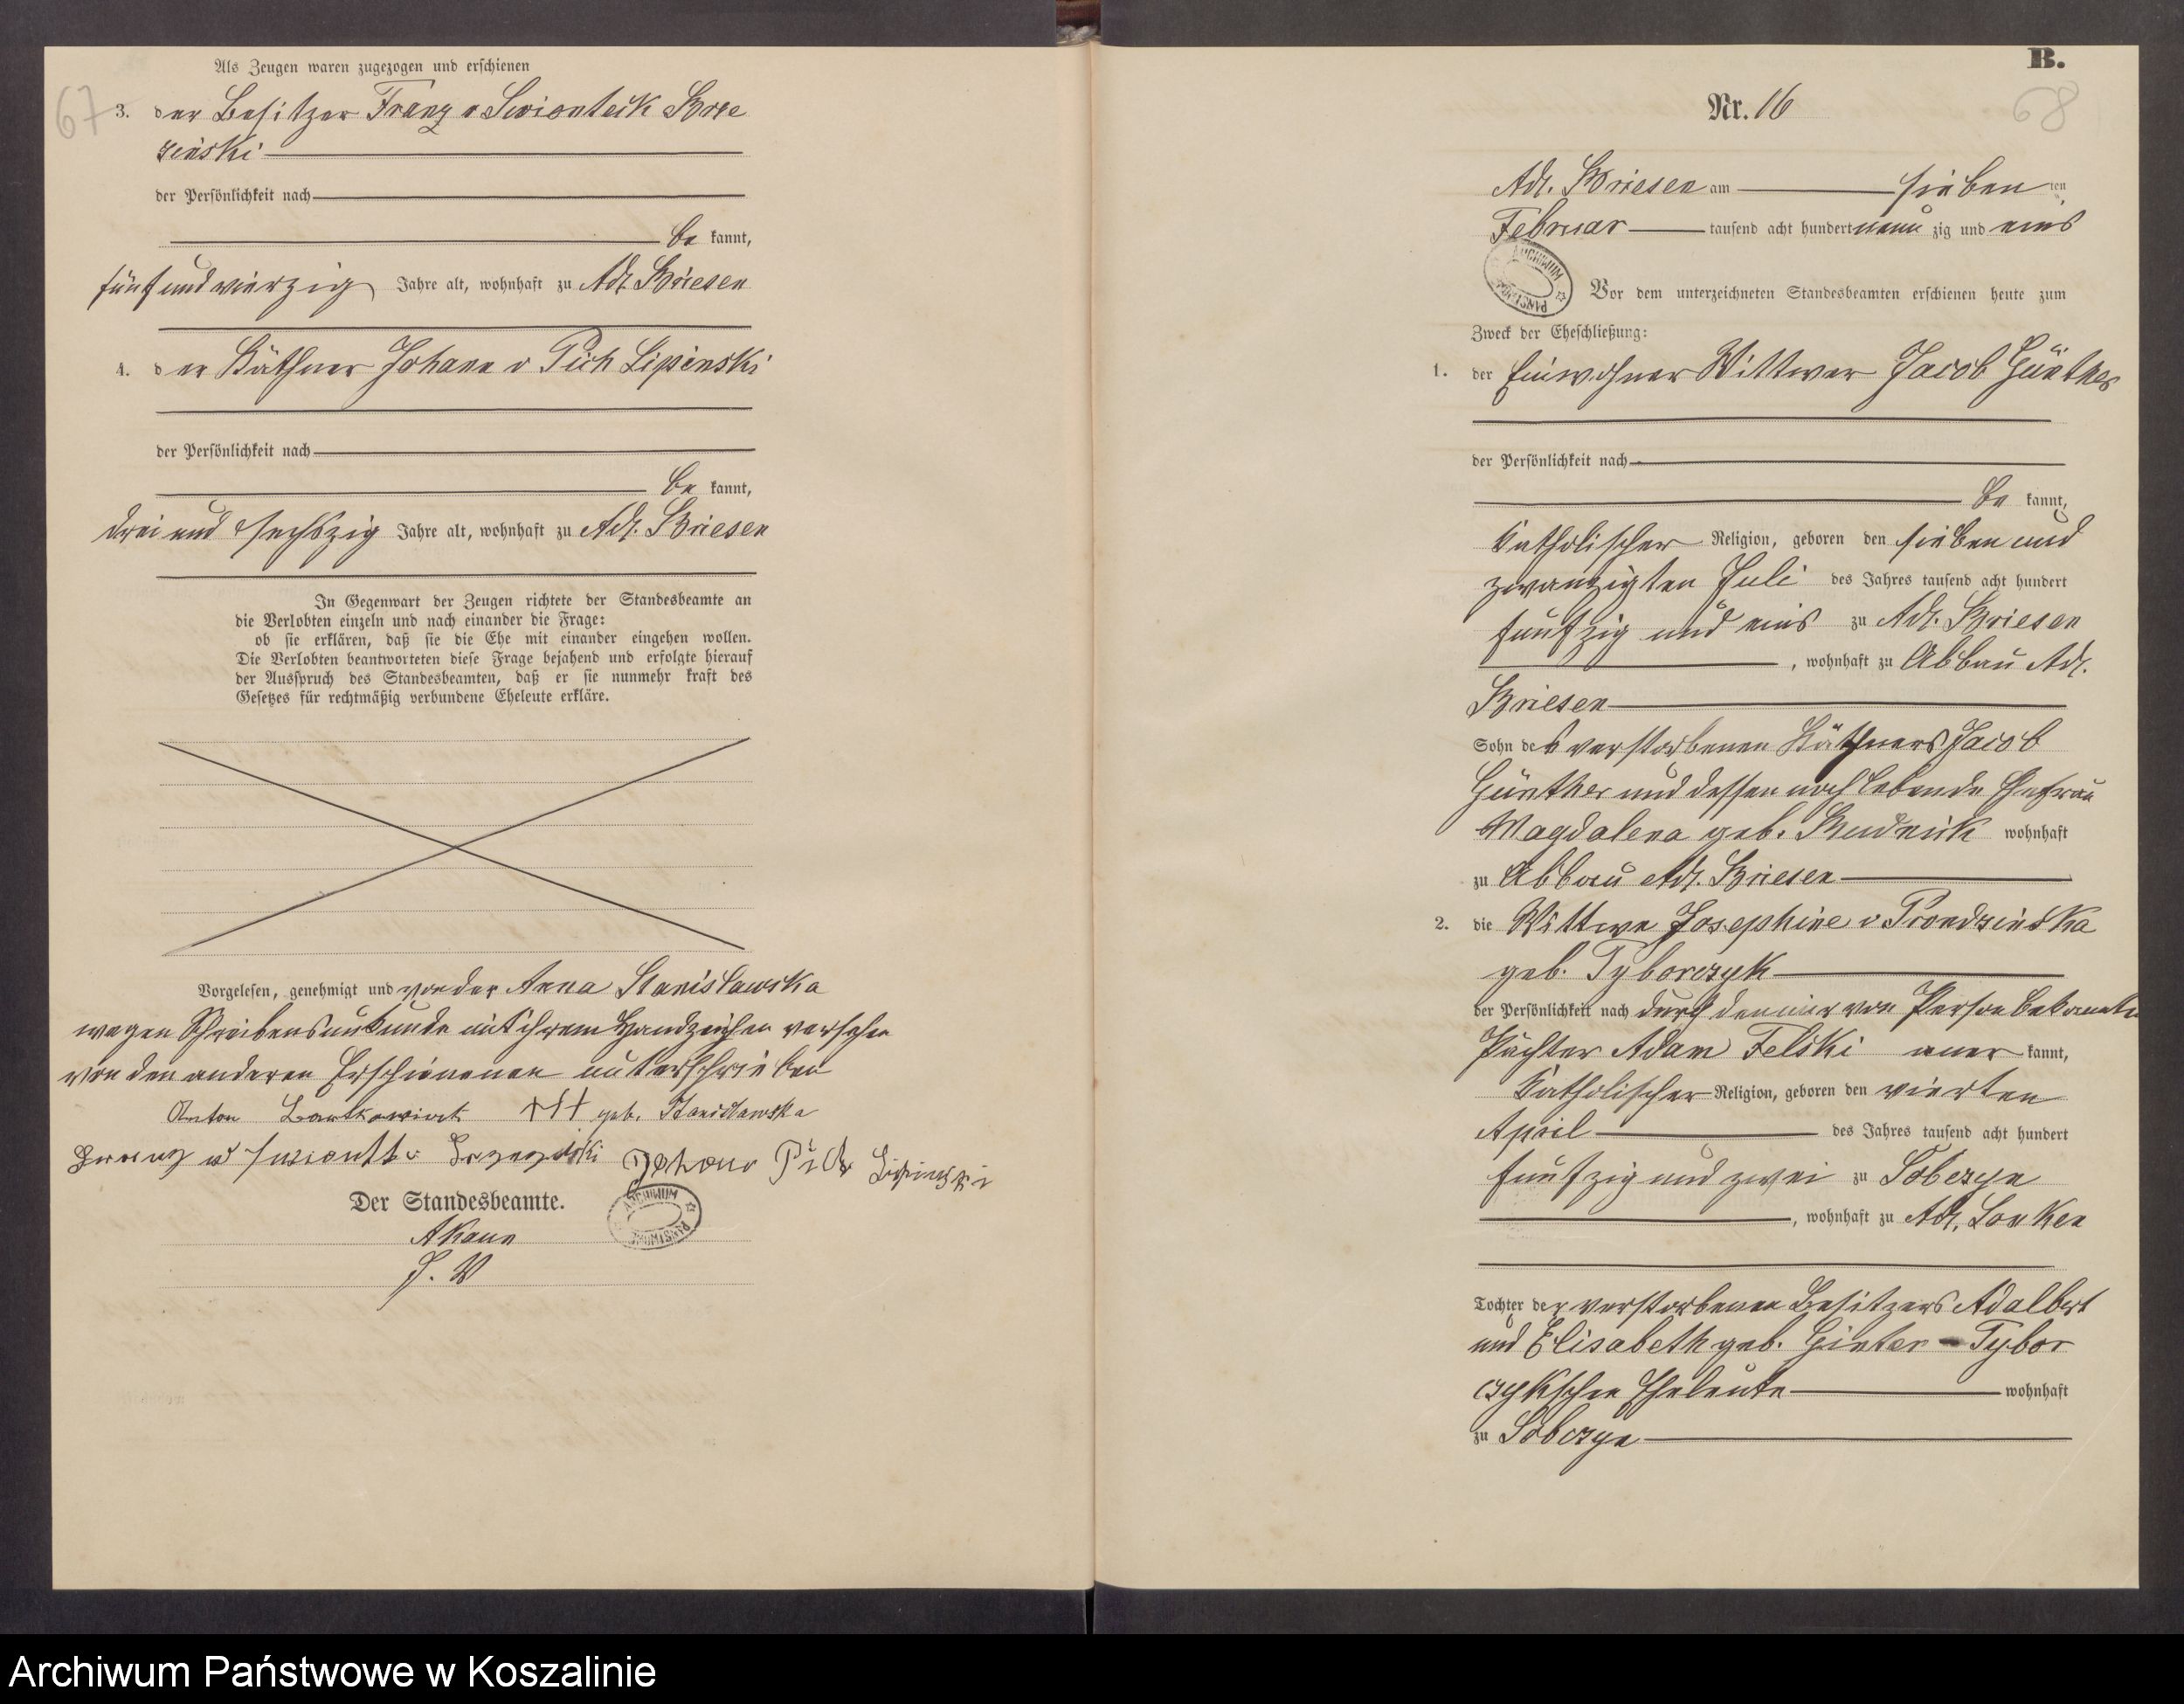 Als Zeugen waren zugezogen und erschienen
67
3. der Besitzer Franz v Swionteck Brze
zinski
der Persönlichkeit nach
be kannt,
fünf und vierzig Jahre alt, wohnhaft zu Adl. Briesen
4. der Käthner Johann v Pich Lipinski
der Persönlichkeit nach
be kannt,
drei und sechszig Jahre alt, wohnhaft zu Adl. Briesen
In Gegenwart der Zeugen richtete der Standesbeamte an
die Verlobten einzeln und nach einander die Frage:
ob sie erklären, daß sie die Ehe mit einander eingehen wollen.
Die Verlobten beantworteten diese Frage bejahend und erfolgte hierauf
der Ausspruch des Standesbeamten, daß er sie nunmehr kraft des
Gesetzes für rechtmäßig verbundene Eheleute erkläre.
Vorgelesen, genehmigt und von der Anna Stanislawska
wegen Schreibensunkunde mit ihrem Handzeichen versehen
von den anderen Erschienenen unterschrieben
Anton +++ geb. Stanislawska
Johann Pich Lipinski
Der Standesbeamte.
J. V
B.
68
Nr. 16
Adl. Briesen am sieben ten
Februar tausend acht hundert neun zig und eins
ARCHIWUM PAŃSTWOWE
Vor dem unterzeichneten Standesbeamten erschienen heute zum
Zweck der Eheschließung:
1. der Einwohner Wittwer Jacob Günther
der Persönlichkeit nach
be kannt,
katholischer Religion, geboren den sieben und
zwanzigten Juli des Jahres tausend acht hundert
funfzig und eins zu Adl. Briesen
, wohnhaft zu Abbau Adl.
Briesen
Sohn des verstorbenen Käthners Jacob
Günther und dessen noch lebende Ehefrau
Magdalena geb. Rudnick wohnhaft
zu Abbau Adl. Briesen
2. die Wittwe Josephine v Prondzinska
geb. Tyborczyk
der Persönlichkeit nach durch den mir von Person bekannten
Pächter Adam Felski aner kannt,
katholischer Religion, geboren den vierten
April des Jahres tausend acht hundert
funfzig und zwei zu Sobczyn
, wohnhaft zu Adl. Lonken
Tochter der verstorbenen Besitzers Adalbert
und Elisabeth geb. Ginter - Tybor
czykschen Eheleute wohnhaft
zu Sobczyn
Archiwum Państwowe w Koszalinie